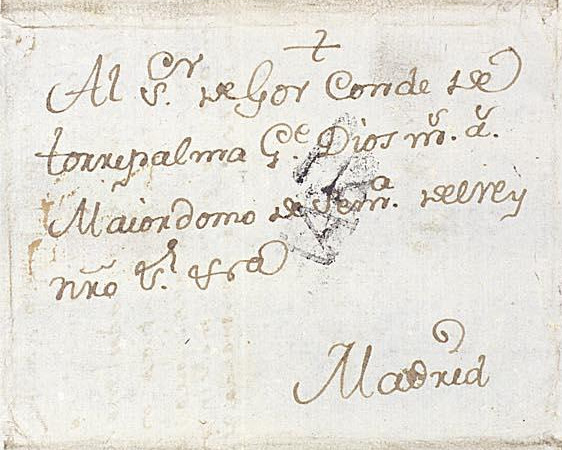 +
Al S.ʳ de Gor Conde de
torrepalma G.ᵉ Dios m.ˢ a.ˢ
Maiordomo de Sem.ᵃ del Rey
nr̃o S.ʳ
Madrid